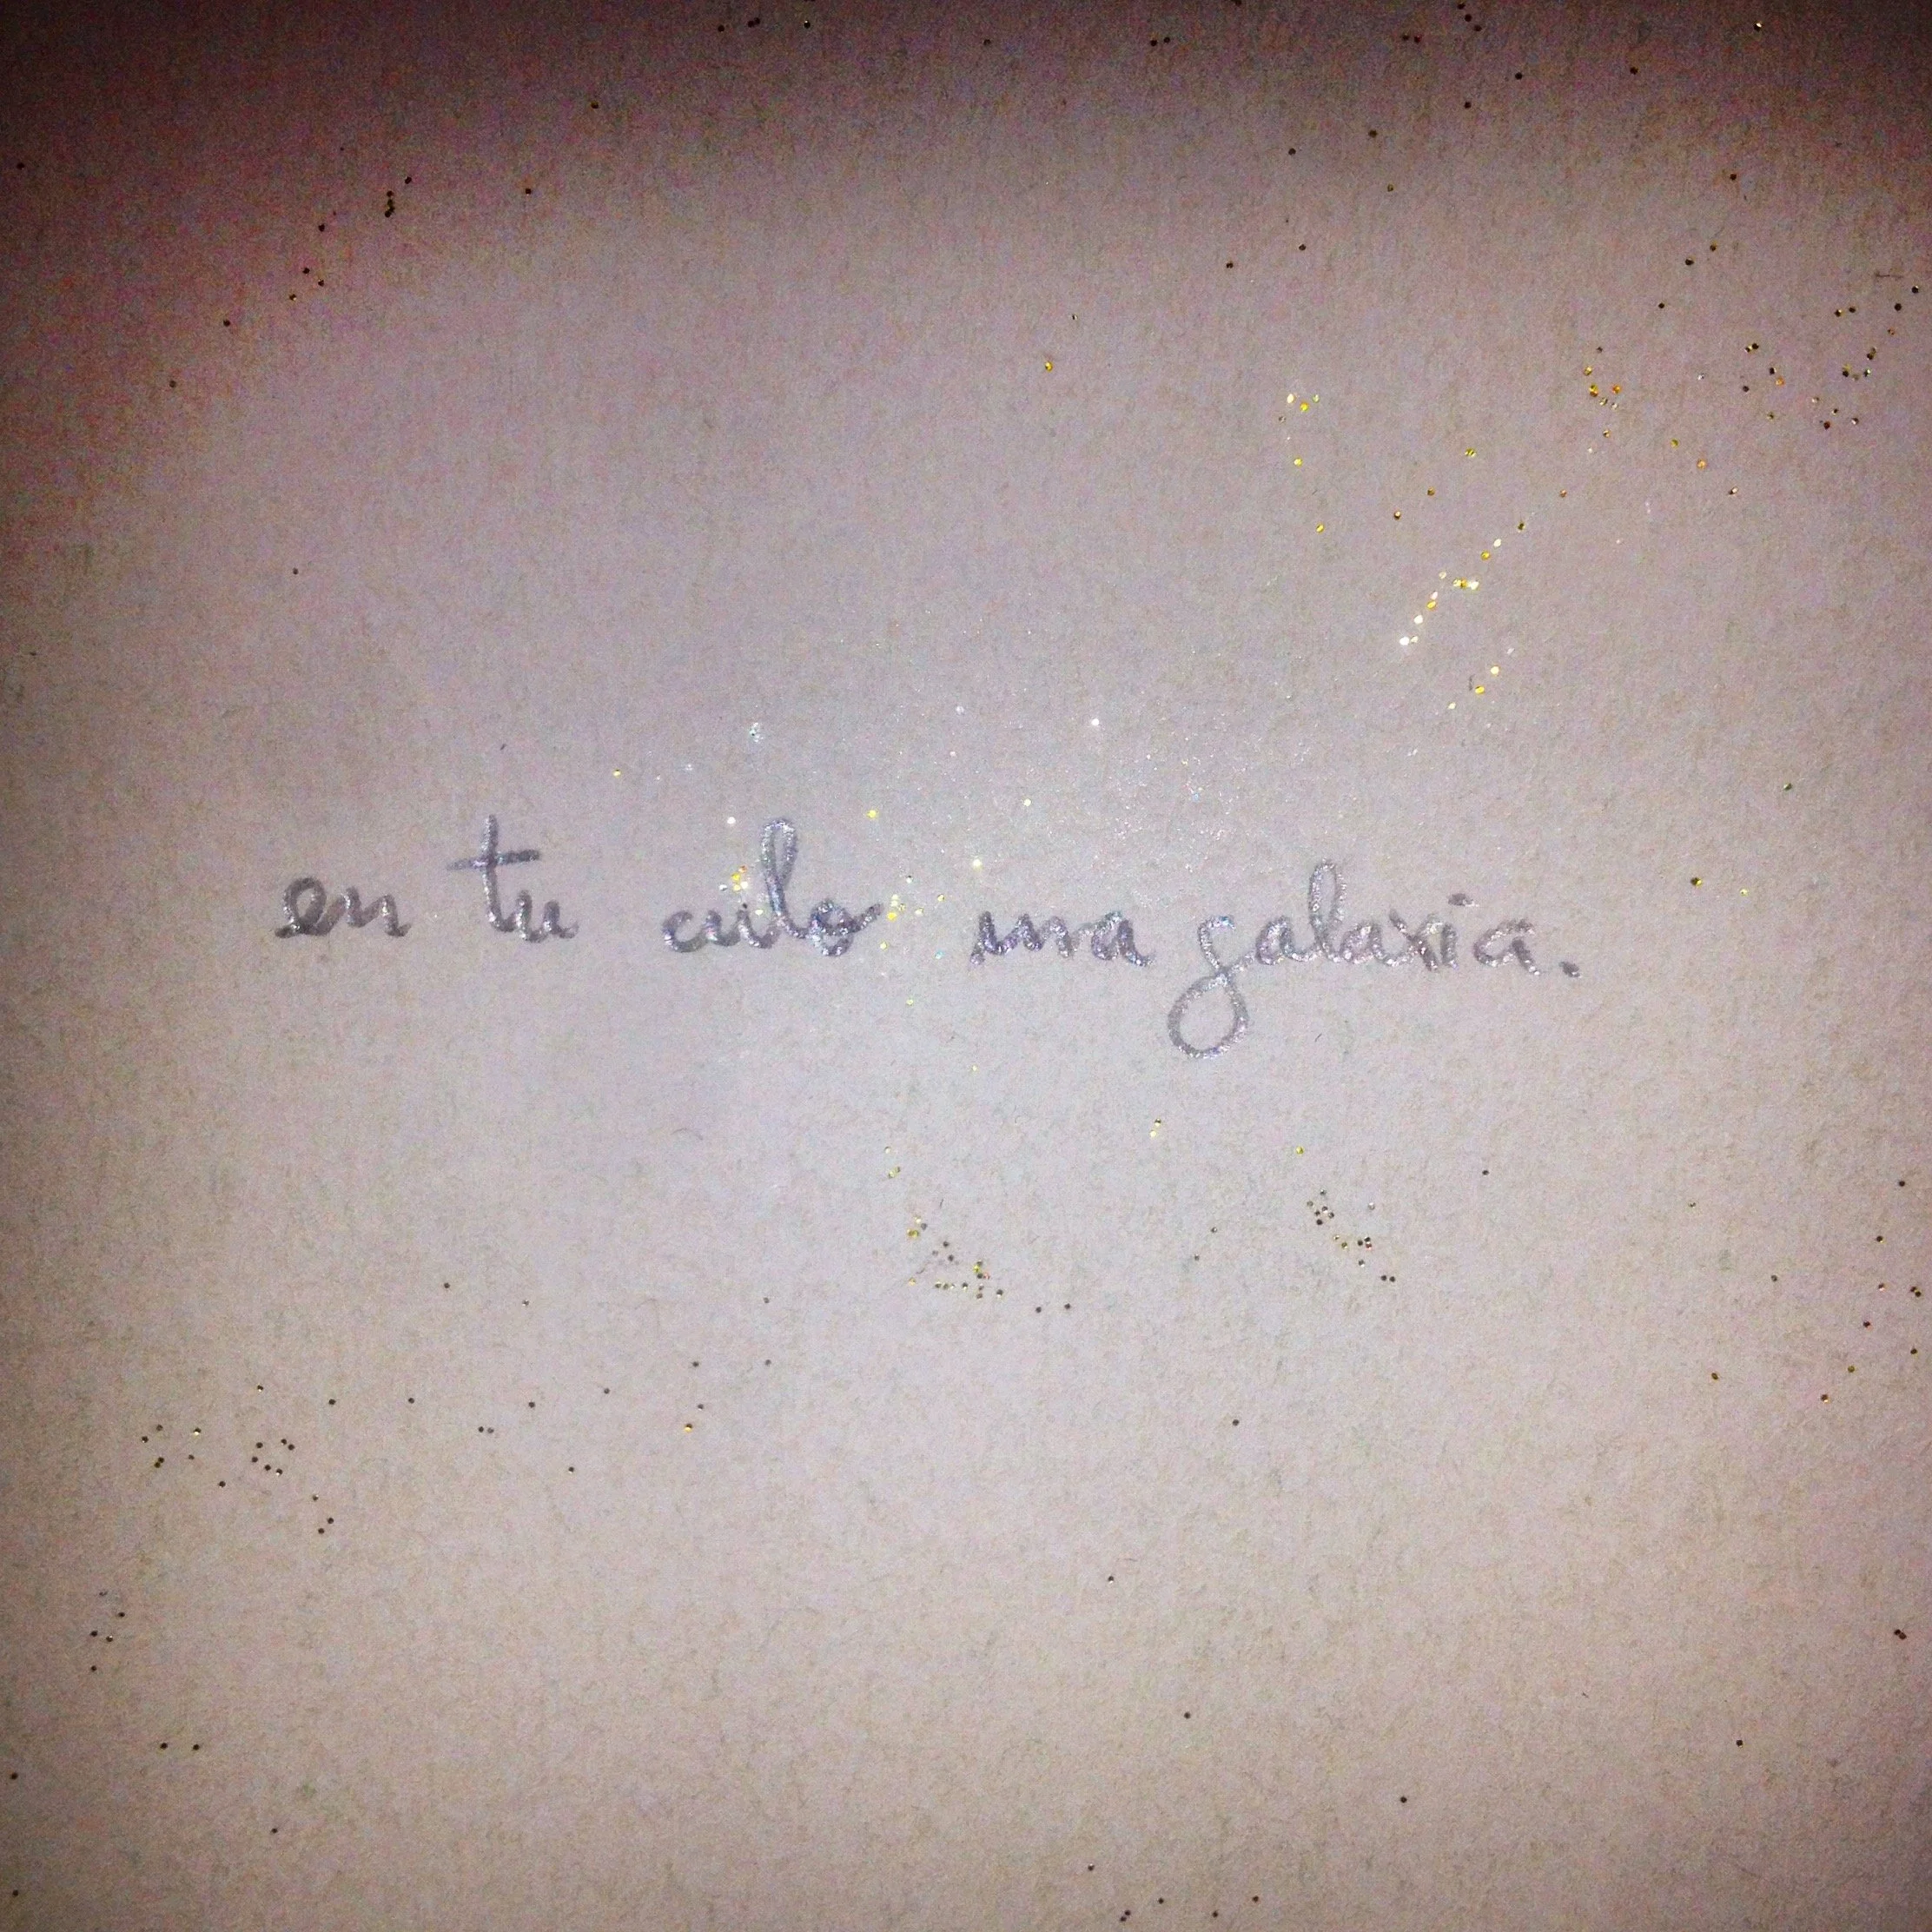 en tu culo una galaxia.